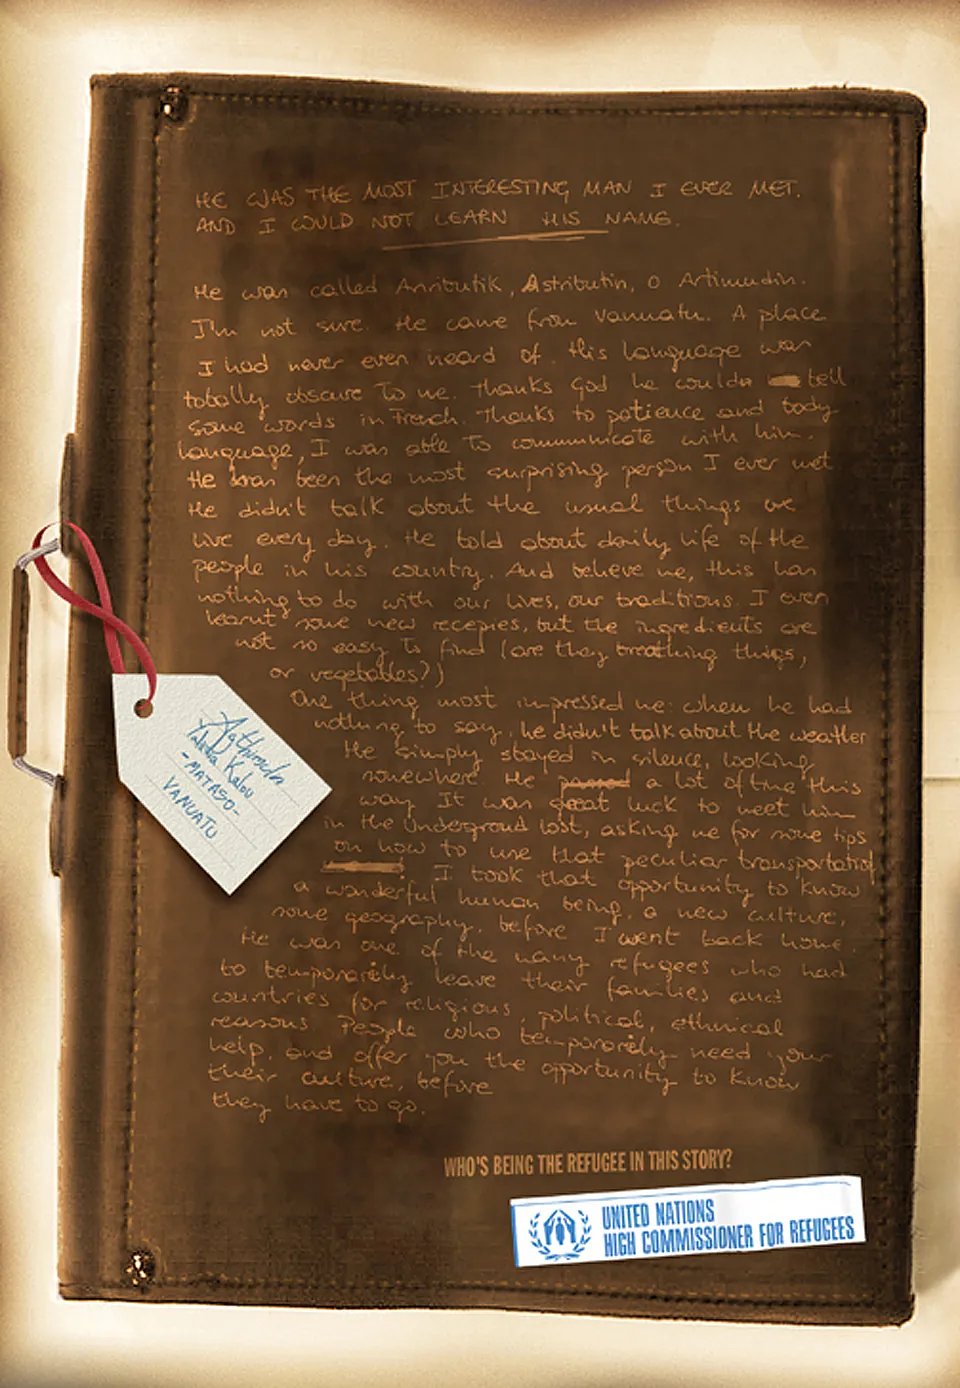 HE WAS THE MOST INTERESTING MAN I EVER MET.
AND I COULD NOT LEARN HIS NAME.
He was called Anributik, Astributin, o Artimudin.
I'm not sure. He came from Vanuatu. A place
I had never even heard of. His language was
totally obscure to me. Thanks God he could tell
some words in French. Thanks to patience and body
language, I was able to communicate with him.
He has been the most surprising person I ever met
He didn't talk about the usual things we
live every day. He told about daily life of the
people in his country. And believe me, this has
nothing to do with our lives, our traditions. I even
learnt some new recepies, but the ingredients are
not so easy to find (are they breathing things,
or vegetables?)
One thing most impressed me: when he had
nothing to say, he didn't talk about the weather
He simply stayed in silence, looking
somewhere. He passed a lot of time this
way. It was great luck to meet him
in the Undergroud lost, asking me for some tips
on how to use that peculiar transportation
I took that opportunity to know
a wonderful human being, a new culture,
some geography, before I went back home
He was one of the many refugees who had
to temporarely leave their families and
countries for religious, political, ethnical
reasons. People who temporarely need your
help, and offer you the opportunity to know
their culture, before
they have to go.
Kalou
-MATASO-
VANUATU
WHO'S BEING THE REFUGEE IN THIS STORY?
UNITED NATIONS
HIGH COMMISSIONER FOR REFUGEES